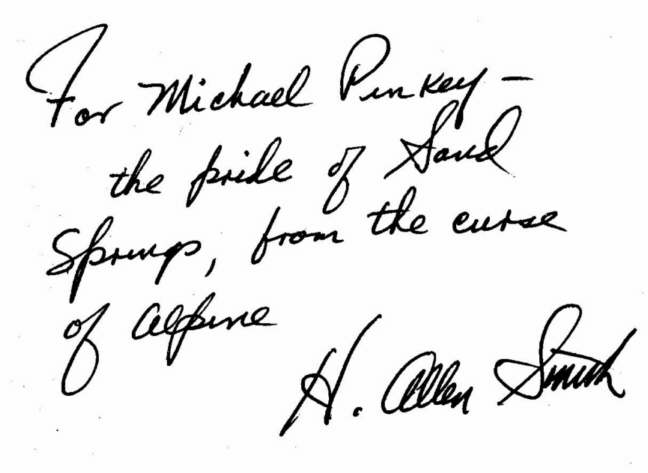 For Michael Pinkey –
the pride of Sand
Springs, from the curse
of Alpine
H. Allen Smith